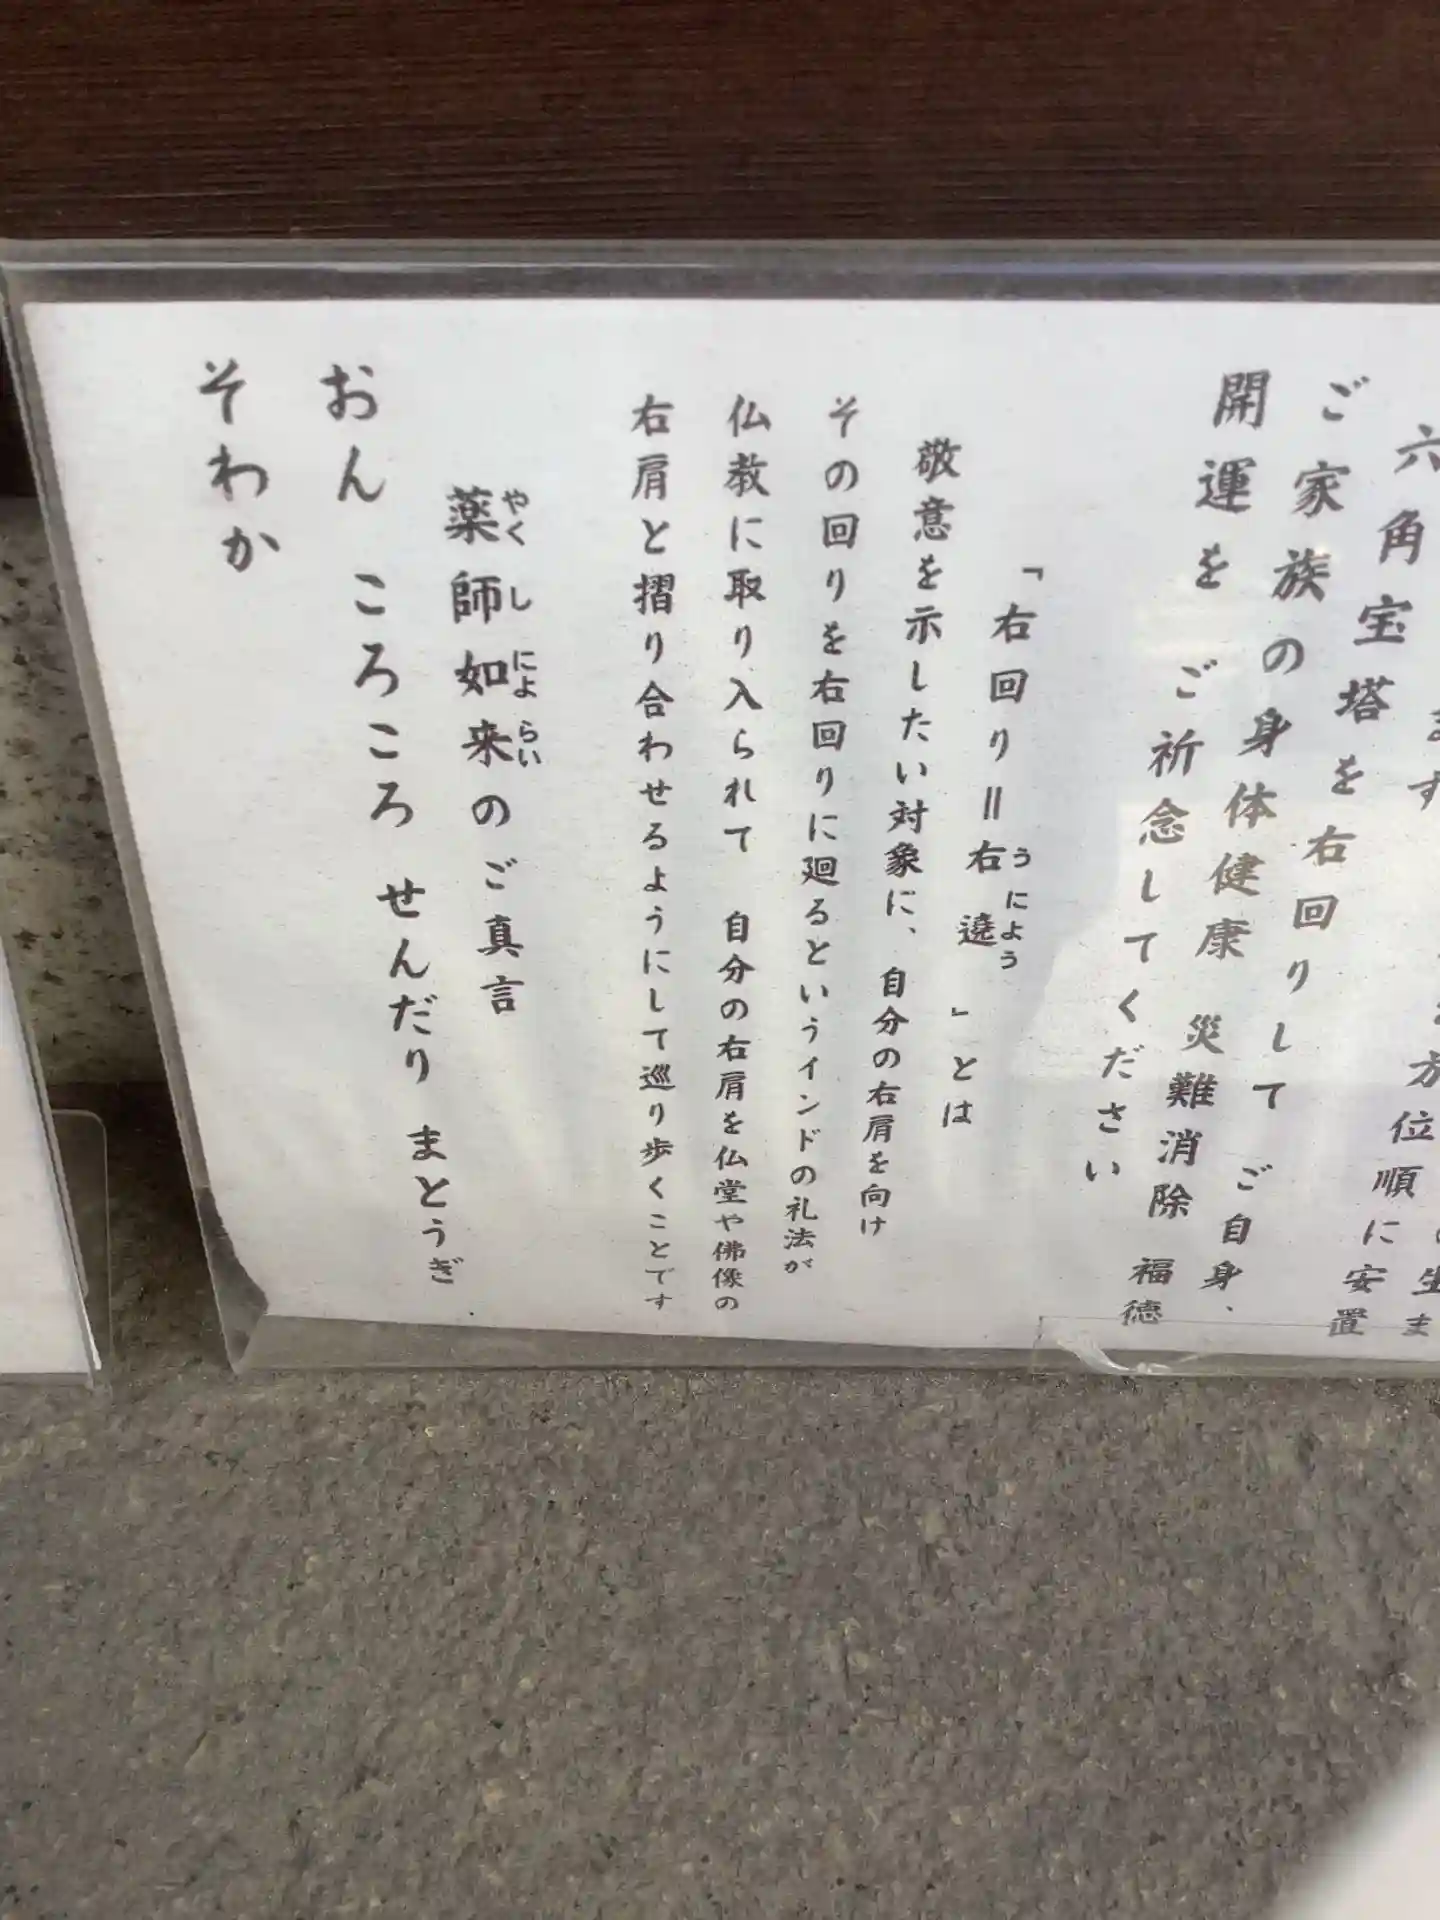 ます
方位順に安置
六角宝塔を右回りして ご自身、
ご家族の身体健康 災難消除 福徳
開運を ご祈念してください
「右回り＝右遶」とは
うにょう
敬意を示したい対象に、自分の右肩を向け
その回りを右回りに廻るというインドの礼法が
仏教に取り入られて 自分の右肩を仏堂や佛像の
右肩と摺り合わせるようにして巡り歩くことです
薬師如来のご真言
やくしによらい
おん ころころ せんだり まとうぎ
そわか